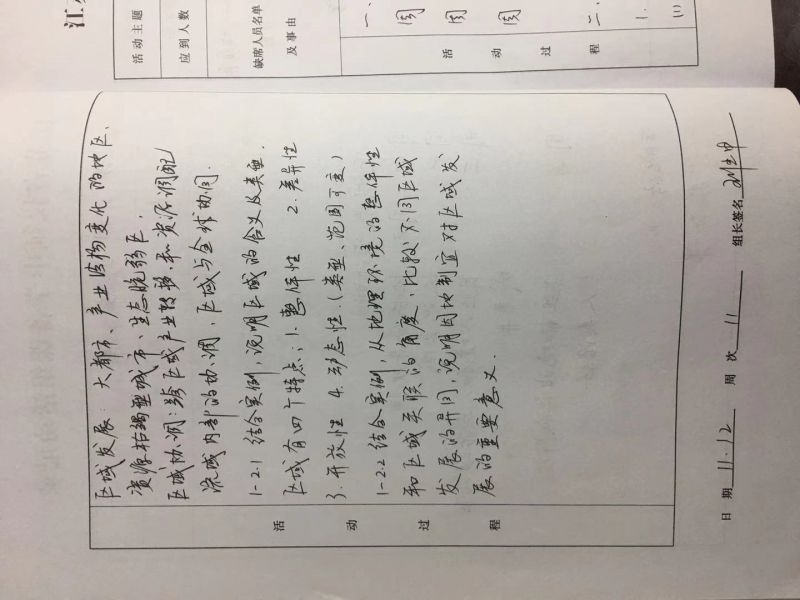 江
活动主题
应到人数
缺席人员名单
及事由
活动过程
一、
二、
1.
(1)
区域发展:大都市、产业结构变化的地区、
资源枯竭型城市、生态脆弱区.
区域协调:跨区域产业转移和资源调配
流域内部的协调,区域与全球协同.
1-2.1 结合实例,说明区域的含义及类型.
区域有四个特点:1.整体性 2.差异性
3.开放性 4.动态性.(类型、范围可变)
1-2.2 结合实例,从地理环境的整体性
和区域关联的角度,比较不同区域
发展的异同,说明因地制宜对区域发
展的重要意义.
活动过程
日期 11.12 周次 11 组长签名